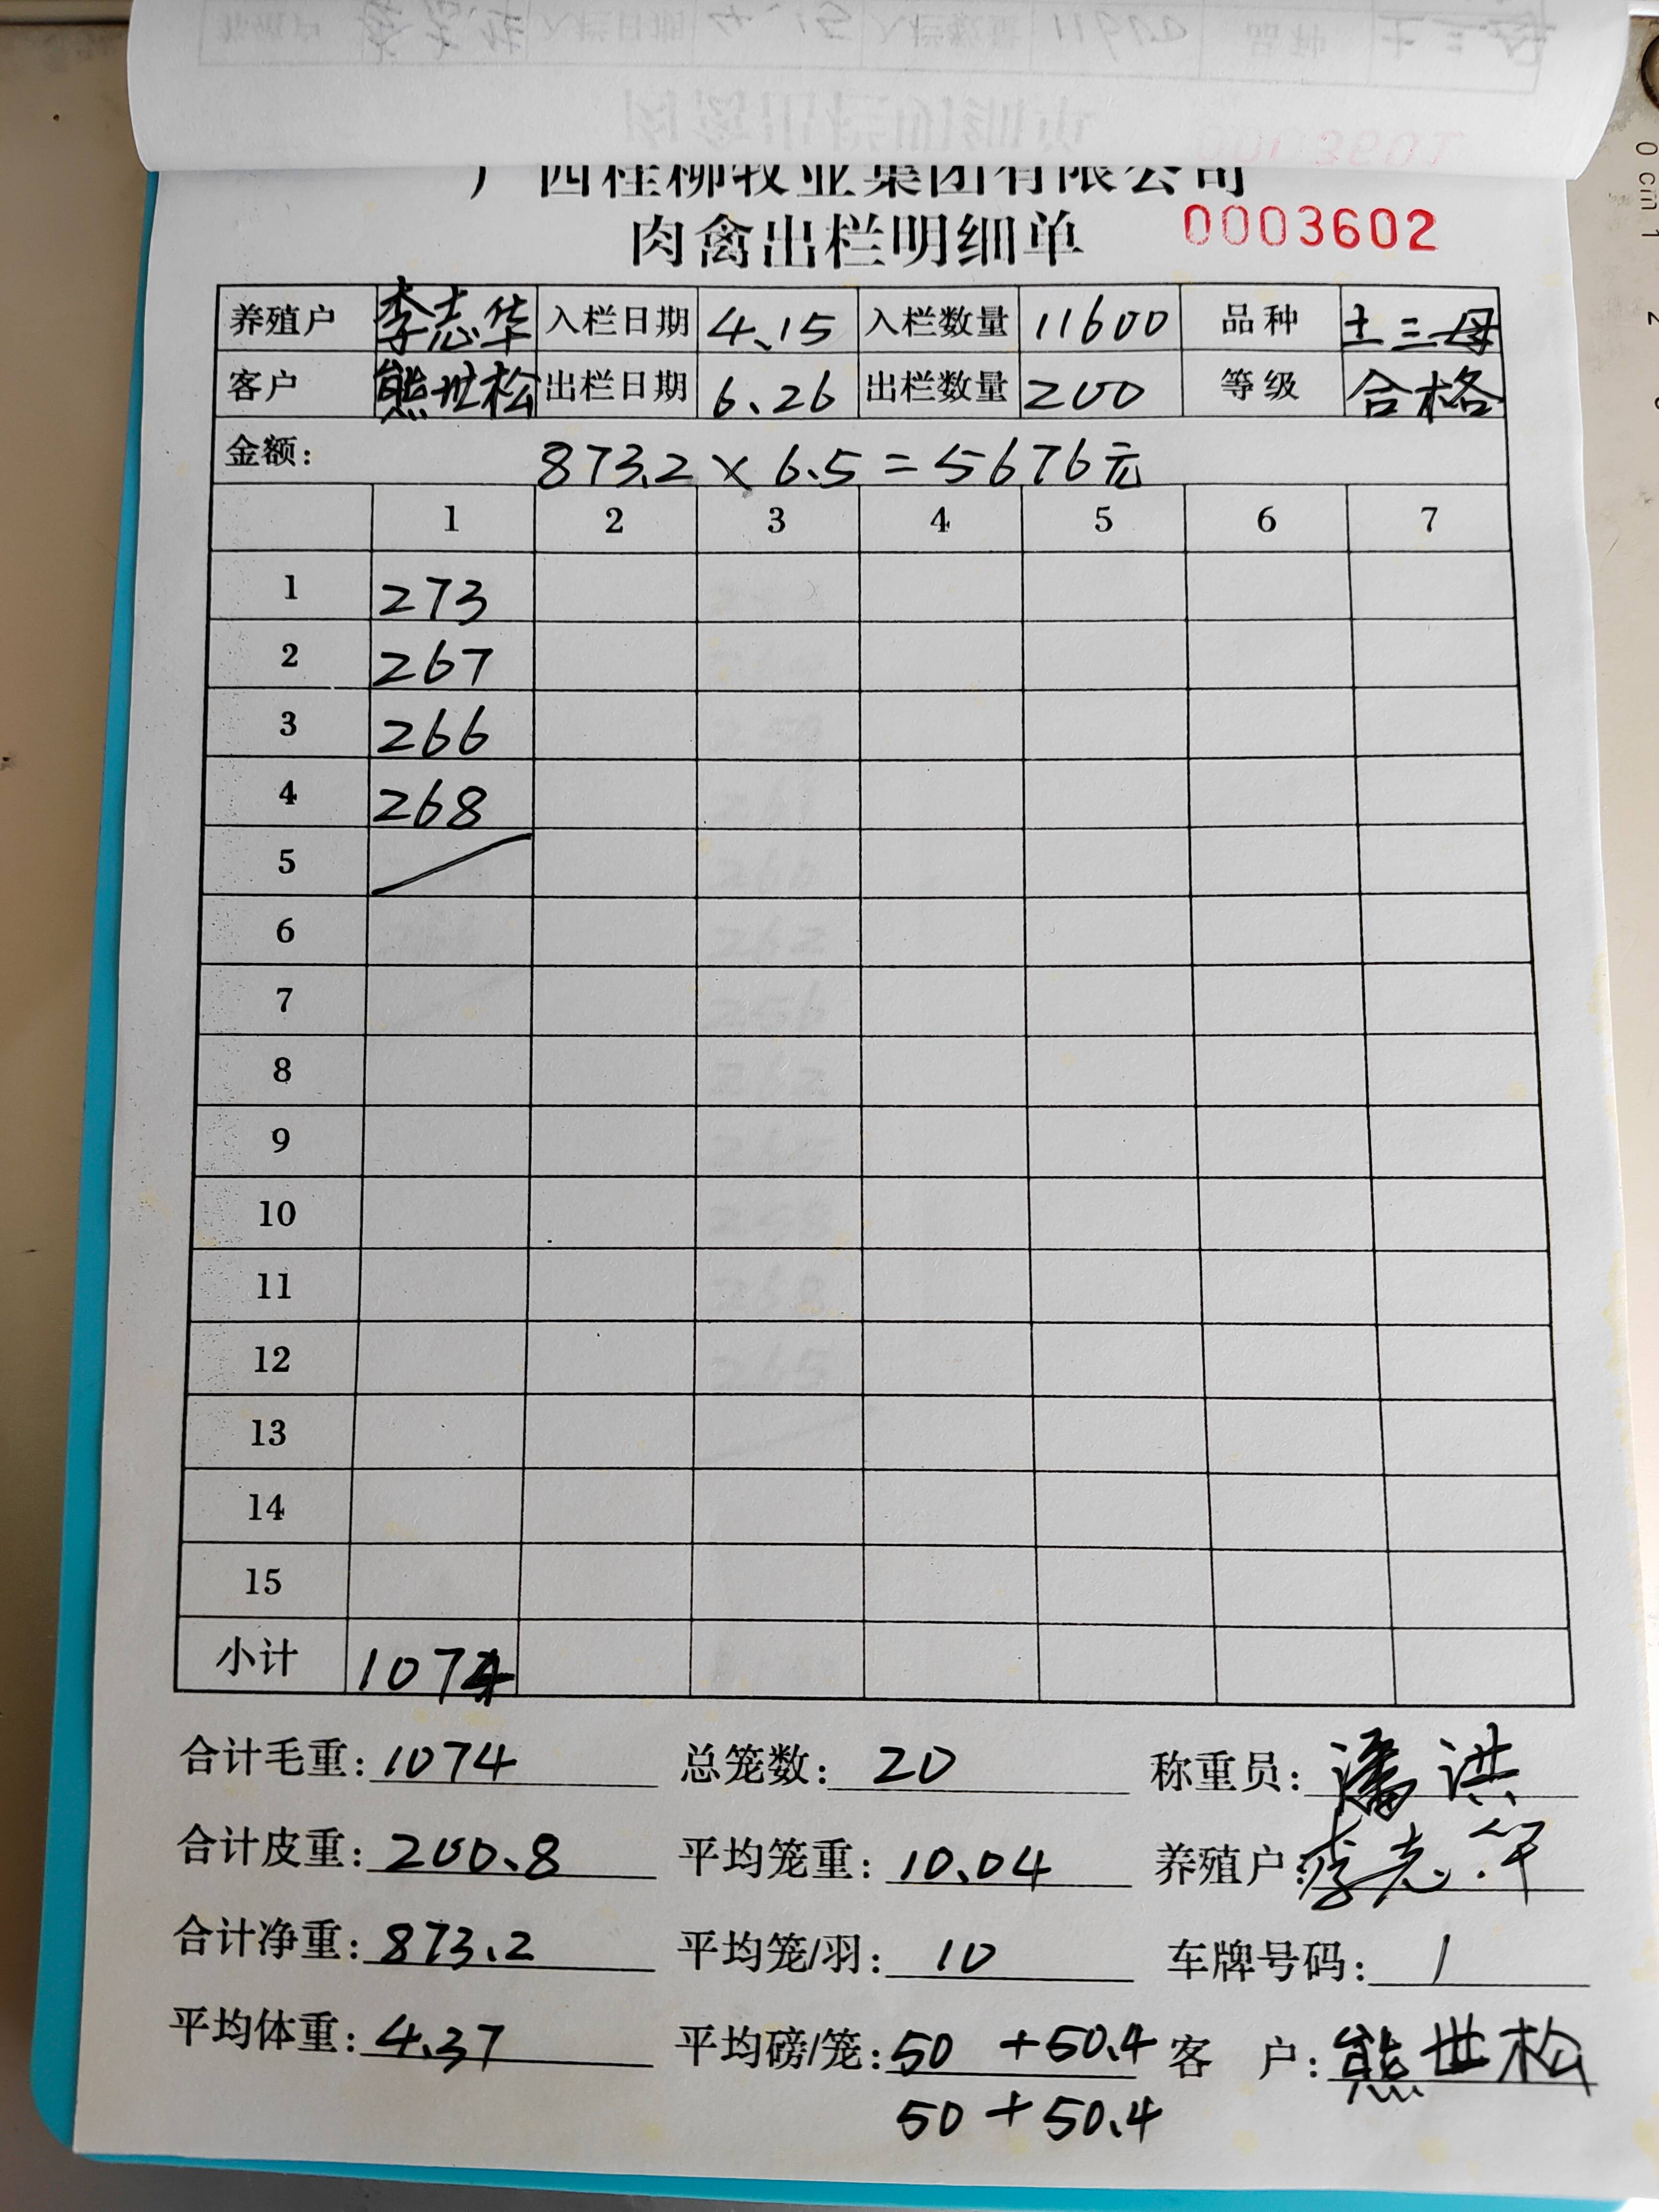 广西桂柳牧业集团有限公司
肉禽出栏明细单 0003602
养殖户 李志华 入栏日期 4.15 入栏数量 11600 品种 土三母
客户 熊世松 出栏日期 6.26 出栏数量 200 等级 合格
金额: 873.2 × 6.5 = 5676元
1 2 3 4 5 6 7
1 273
2 267
3 266
4 268
5
6
7
8
9
10
11
12
13
14
15
小计 1074
合计毛重: 1074 总笼数: 20 称重员: 潘洪
合计皮重: 200.8 平均笼重: 10.04 养殖户: 李志华
合计净重: 873.2 平均笼/羽: 10 车牌号码: 1
平均体重: 4.37 平均磅/笼: 50 + 50.4 客 户: 熊世松
50 + 50.4